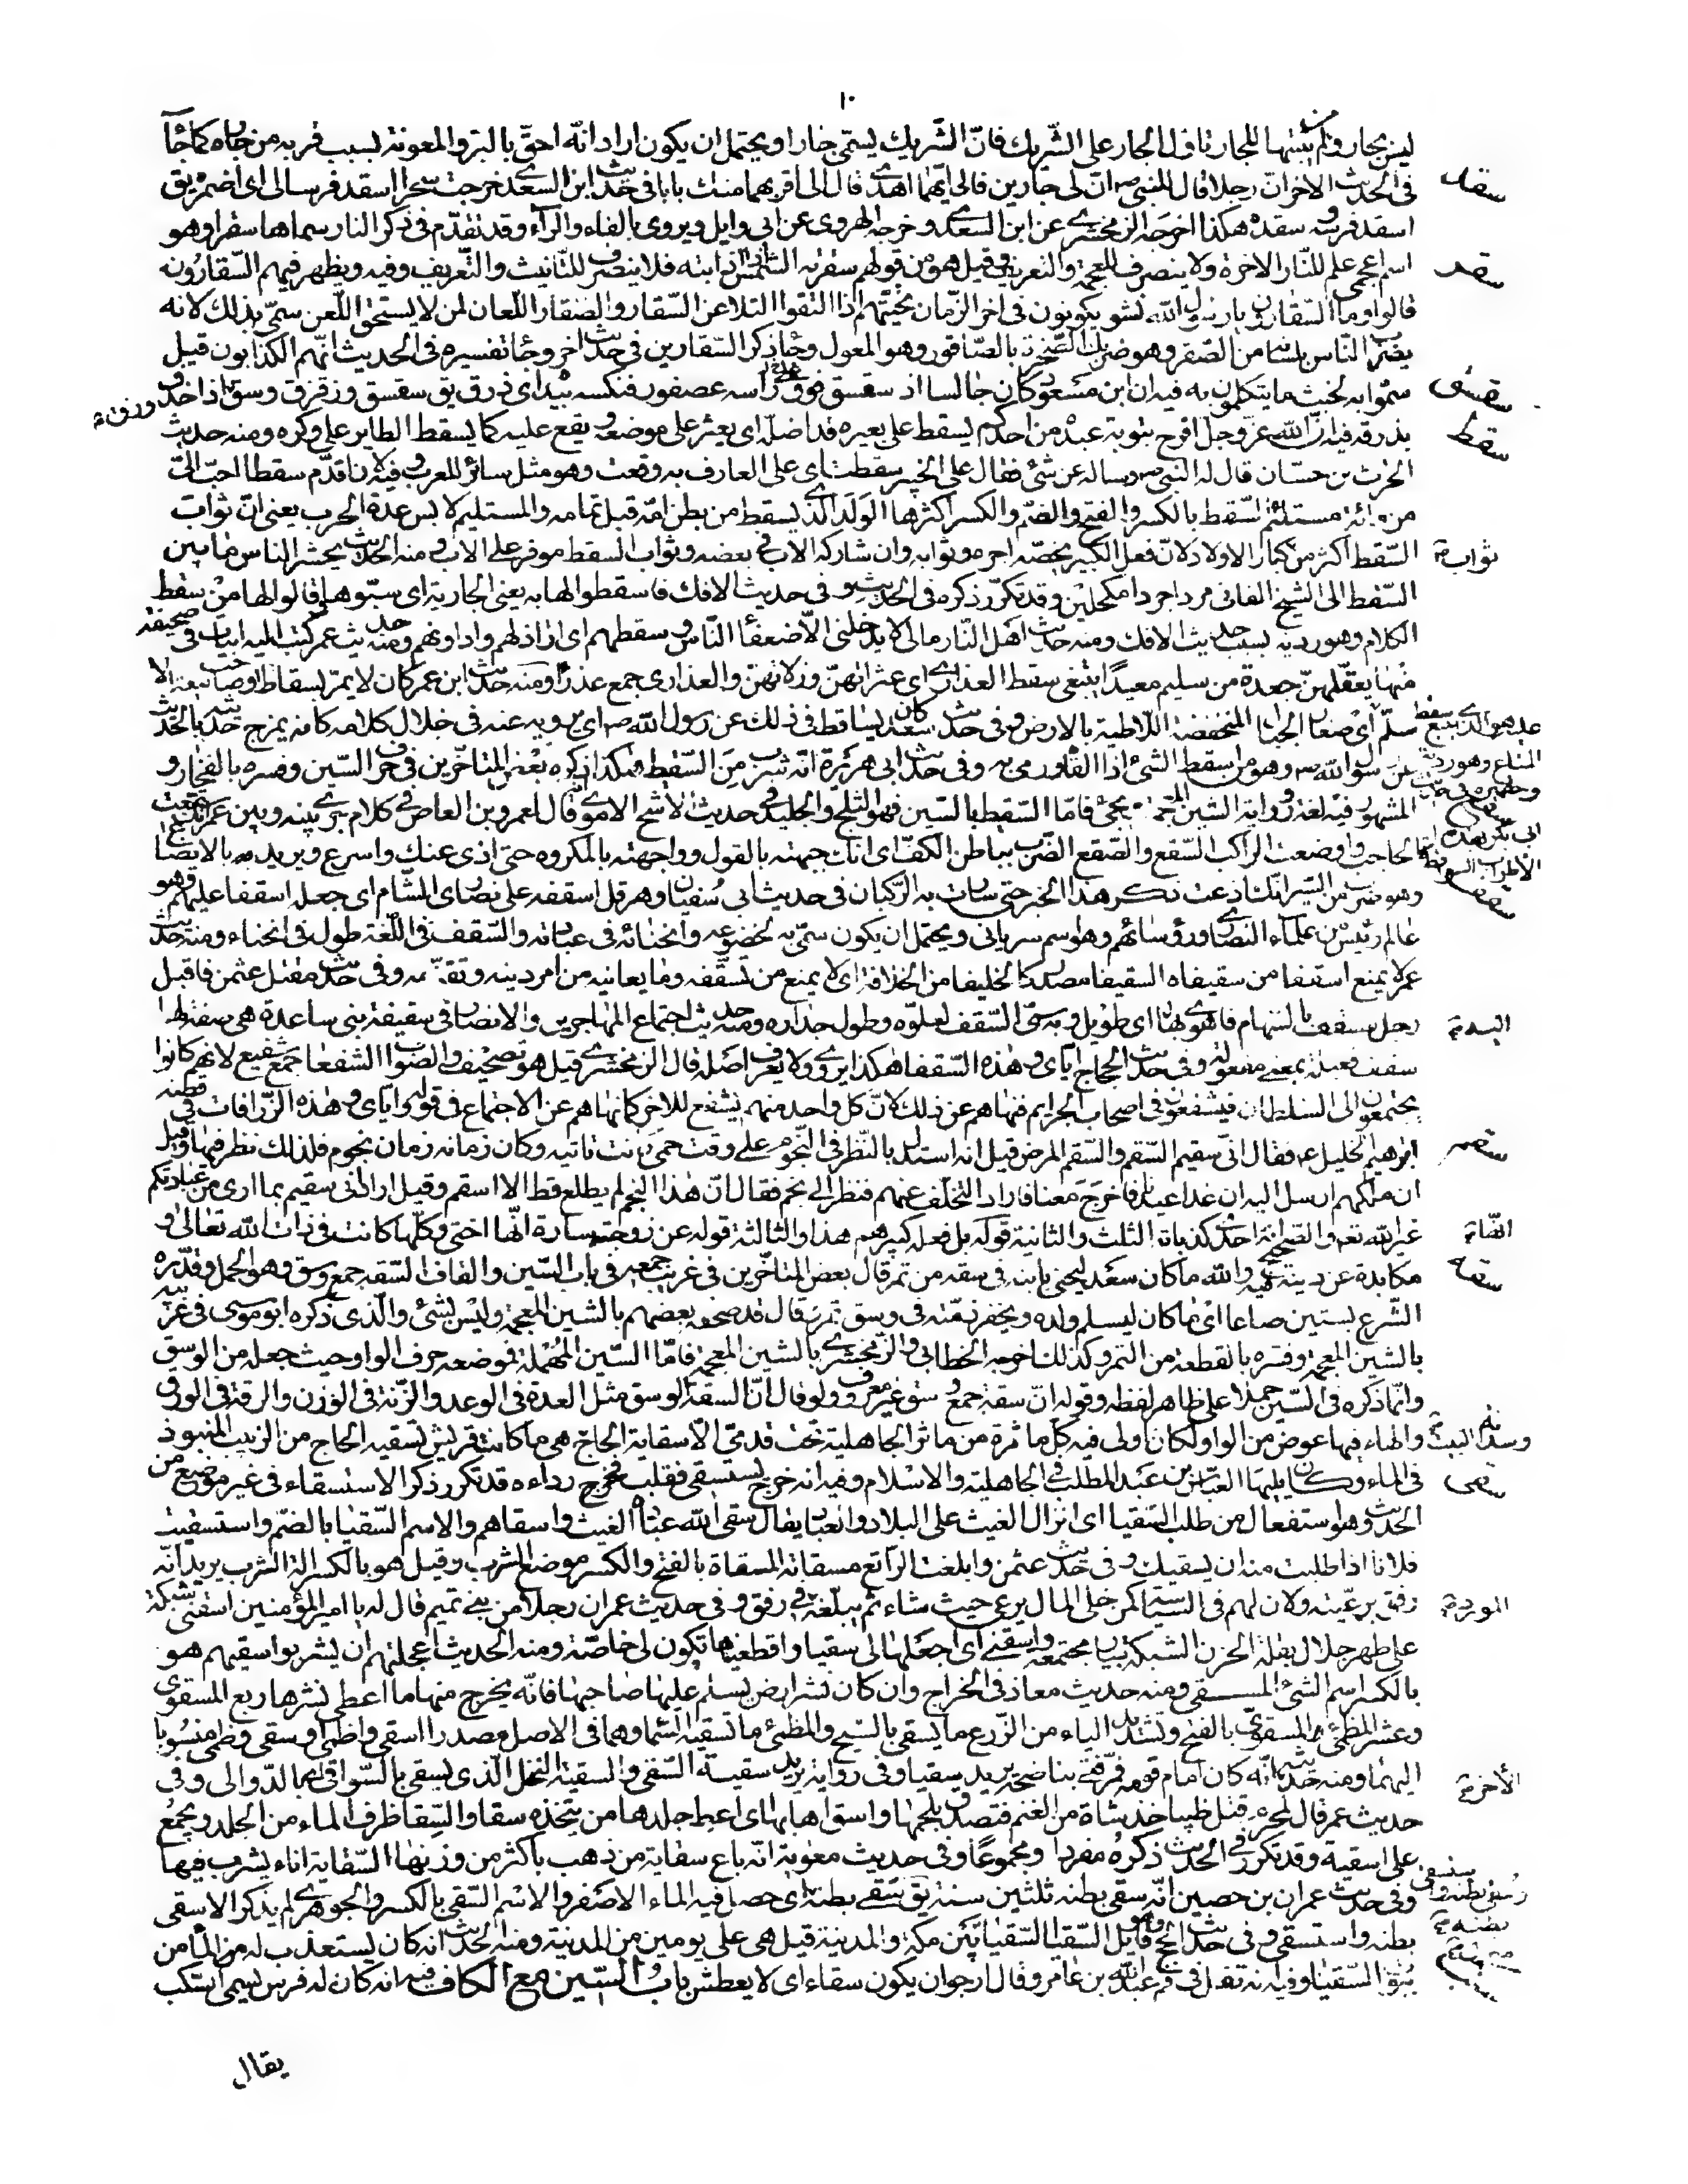 ١٠
ليس بجار ومن لم يثبتها للجار تاول الجار على الشّريك فانّ الشّريك يسمّى جارا ويحتمل ان يكون اراد انّه احقّ بالبرّ والمعونة بسبب قربه من جاره كما جآء
سقد
فى الحديث الاخر انّ رجلا قال للنبى ص انّ لى جارين فالى ايّهما اهدى قال الى اقربهما منك بابا فى حديث ابن السعدى خرجت سحرا اسقد فرسا لى اى اضمره يق
اسقد فرسه وسقده هكذا اخرجه الزمخشرى عن ابن السعدى وخرجه الهروى عن ابى وايل ويروى بالفاء والرآء وقد تقدّم فى ذكر النار سماها سقرا وهو
سقر
اسم اعجمى علم للنّار الاخرة ولا ينصرف للعجمة والتعريف وقيل هو من قولهم سقرته الشمس اذا اذابته فلا ينصرف للتّانيث والتّعريف وفيه ويظهر فيهم السّقارون
قالوا وما السّقارون يا رسول الله قال نشو يكونون فى اخر الزّمان تحيّتهم اذا التقوا التلاعن السّقار والصّقار اللّعان لمن لا يستحق اللّعن سمّى بذلك لانه
يضرب النّاس بلسانه من الصّقر وهو ضربك الصّخرة بالصّاقور وهو المعول وجاء ذكر السّقارين فى حديث اخر وجاء تفسيره فى الحديث انّهم الكذّابون قيل
سقسق
سمّوا به لخبث ما يتكلمون به فيه ان ابن مسعود كان جالسا اذ سقسق على راسه عصفور فنكسه بيده اى ذرق يق سقسق وزقزق وسق وزق اذا حذف
سقط
بذرقه فيه انّ الله عزّ وجل افرح بتوبة عبده من احدكم يسقط على بعيره قد اضلّه اى يعثر على موضعه ويقع عليه كما يسقط الطاير على وكره ومنه حديث
الحرث بن حسّان قال له النبى ص وساله عن شئ فقال على الخبير سقطت اى على العارف به وقعت وهو مثل ساير للعرب وفيه لان اقدّم سقطا احبّ الىّ
من مائة مستلئم السّقط بالكسر والفتح والضمّ والكسر اكثرها الولد الذى يسقط من بطن امّه قبل تمامه والمستليم لابس عدة الحرب يعنى انّ ثواب
ثوابه
السّقط اكثر من كبار الاولاد لانّ فعل الكبير يخصّه اجره وثوابه وان شاركه الاب فى بعضه وثواب السقط موفر على الاب ومنه الحديث يحشر الناس ما بين
السّقط الى الشيخ الفانى مردا جردا مكحّلين وقد تكرّر ذكره فى الحديث وفى حديث الافك فاسقطوا لها به يعنى الجارية اى سبّوها وقالوا لها من سقط
الكلام وهو رديه بسبب حديث الافك ومنه حديث اهل النّار مالى لا يدخلنى الاّ ضعفآء النّاس وسقطهم اى اراذلهم وادوانهم ومنه حديث عمر كتب اليه ابيات فى صحيفة
منها يعقّلهنّ جعدة من سليم معيدا يبتغى سقط العذارى اى عثراتهنّ وزلاتهنّ والعذارى جمع عذرآء ومنه حديث ابن عمر كان لا يمرّ بسقاط او صاحب بيعة الا
عليه هو الذى يبيع سقط المتاع وهو رديه
سلّم
وفى حديث سعد كان يساقط فى ذلك عن رسول الله ص اى يرويه عنه فى خلال كلامه كانه يمزج حديثه بالحديث
عن رسول الله ص وهو من اسقط الشئ اذا القاه ورمى به وفى حديث ابى هريرة انّه شرب من السّقيط هكذا ذكره بعض المتاخّرين فى حرف السّين وفسره بالفخّار و
المشهور فيه لغة ورواية الشين المعجمة وسيجئ فامّا السّقيط بالسّين فهو الثلج والجليد فى حديث الاشج الاموى انه قال لعمرو بن العاص فى كلام جرى بينه وبين عمر انّك سقعت
الحاجب واوضعت الراكب السّقع والصّقع الضّرب بباطن الكفّ اى انّك جبهته بالقول وواجهته بالمكروه حتى ادّى عنك واسرع ويريد به بالايضاع
سقف
وهو ضرب من السّير انّك اذعت ذكر هذا الخبر حتى سارت به الرّكبان فى حديث ابى سفيان وهرقل اسقفه على نصارى الشّام اى جعله اسقفا عليهم وهو
عالم رئيس من علماء النصارى ورؤسائهم وهو اسم سريانى ويحتمل ان يكون سمّى به لخضوعه وانحنائه فى عبادته والسّقف فى اللّغة طول فى انحناء ومنه حديث
عمر لا يمنع اسقف من سقيفاه السقيفا مصدر كالخليفا من الخلافة اى لا يمنع من تسقّفه وما يعانيه من امر دينه وتقدّمه وفى حديث مقتل عثمن فاقبل
رجل مسقّف بالسّهام فاهوى بها اى طويل وبه سمّى السّقف لعلوّه وطول جداره ومنه حديث اجتماع المهاجرين والانصار فى سقيفة بنى ساعدة هى صفة لها
سقف فعيلة بمعنى مفعولة وفى حديث الحجاج اياى وهذه السّقفا هكذا يروى ولا يعرف اصله قال الزمخشرى قيل هو تصحيف والصّواب الشفعا جمع شفيع لانهم كانوا
يجتمعون الى السلطان فيشفعون فى اصحاب الجرايم فنهاهم عن ذلك لانّ كل واحد منهم يشفع للاخر كما نهاهم عن الاجتماع فى قوله واياى وهذه الزّرافات فى قصّة
سقم
ابرهيم الخليل ع فقال انّى سقيم السّقم والسّقم المرض قيل انه استدل بالنّظر فى النّجوم على وقت حمى كانت تاتيه وكان زمانه زمان نجوم فلذلك نظر فيها وقيل
ان ملكهم ارسل اليه ان غدا عيدنا فاخرج معنا فاراد التخلّف عنهم فنظر الى نجم فقال انّ هذا النجم لم يطلع قط الا اسقم وقيل اراد انى سقيم بما ارى من عبادتكم
غير الله تعالى والصّحيح انّها احدى كذباته الثلث والثانية قوله بل فعله كبيرهم هذا والثالثة قوله عن زوجته سارة انّها اختى وكلّها كانت فى ذات الله تعالى و
سقه
مكابدة عن دينه فيه والله ما كان سعد ليخنى بابنه فى سقه من تمر قال بعض المتاخّرين فى غريب جمعه فى باب السّين والقاف السّقه جمع وسق وهو الحمل وقدّره
الشّرع بستين صاعا اى ما كان ليسلم ولده ويخفر ذمّته فى وسق تمر وقال قد صحفه بعضهم بالشين المعجمة وليس بشئ والّذى ذكره ابو موسى فى غريبه
بالشين المعجمة وفسّره بالقطعة من التمر وكذلك اخرجه الخطابى والزمخشرى بالشين المعجمة فامّا السّين المهملة فموضعه حرف الواو حيث جعله من الوسق
وانّما ذكره فى السّين حملا على ظاهر لفظه وقوله انّ سقة جمع وسق غير معروف ولو قال انّ السقة الوسق مثل العدة فى الوعد والزّنة فى الوزن والرقة فى الورق
وسدانة البيت
والهاء فيها عوض من الواو لكان اولى فيه كل ماثرة من ماثر الجاهلية تحت قدمىّ الاّ سقاية الحاج هى ما كانت قريش تسقيه الحاج من الزبيب المنبوذ
سقى
فى الماء وكان يليها العبّاس بن عبد المطلب فى الجاهلية والاسلام وفيه انه خرج يستسقى فقلب رداءه قد تكرر ذكر الاستسقاء فى غير موضع من
الحديث وهو استفعال من طلب السّقيا اى انزال الغيث على البلاد والعباد يقال سقى الله عباده الغيث واسقاهم والاسم السّقيا بالضمّ واستسقيت
فلانا اذا طلبت منه ان يسقيك وفى حديث عثمن وابلغت الرّاتع مسقاته المسقاة بالفتح والكسر موضع الشرب وقيل هو بالكسر الة الشرب يريد انّه
رفق برعيّته ولان لهم فى السّياسة كمن خلى المال يرعى حيث شاء ثم يبلّغه فى رفق وفى حديث عمر ان رجلا من بنى تميم قال له يا امير المؤمنين اسقنى شبكة
على ظهر جلال بقلة الحزن الشبكة بيار مجتمعة واسقنى اى اجعلها لى سقيا واقطعنيها تكون لى خاصّة ومنه الحديث اعجلتهم ان يشربوا سقيهم هو
بالكسر اسم الشئ المسقى ومنه حديث معاذ فى الخراج وان كان نشر ارض يسلم عليها صاحبها فانّه يخرج منها ما اعطى نشرها ربع المسقوى
وعشر المظمئى المسقوىّ بالفتح وتشديد الياء من الزّرع ما يسقى بالسّيح والمظمئى ما تسقيه السّما وهما فى الاصل مصدرا اسقى واظمى او سقى وظمى منسوبا
اليهما ومنه حديثه انّه كان امام قومه فمرّ فتى بناضحه يريد سقيا وفى رواية يريد سقية السّقى والسقية النخل الّذى يسقى بالسّواقى اى بالدّوالى وفى
حديث عمر قال لمحرم قتل ظبيا خذ شاة من الغنم فتصدق بلحمها واسق اهابها اى اعط جلدها من يتخذه سقاء والسّقا ظرف الماء من الجلد ويجمع
على اسقية وقد تكرر فى الحديث ذكره مفردا ومجموعا وفى حديث معوية انّه باع سقاية من ذهب باكثر من وزنها السّقاية اناء يشرب فيها
وفى حديث عمران بن حصين انّه سقى بطنه ثلثين سنة يق سقى بطنه اى حصل فيه الماء الاصفر والاسم السّقى بالكسر والجوهرى لم يذكر الا سقى
بطنه واستسقى وفى حديث الحج وهو قايل السّقيا السّقيا بين مكة والمدينة قيل هى على يومين من المدينة ومنه الحديث انه كان يستعذب له الماء من
بيوت السّقيا وفيه انه تفل فى فم عبد الله بن عامر وقال ارجو ان يكون سقاء اى لا يعطش باب السّين مع الكاف فيه انه كان له فرس يسمى السّكب
يقال